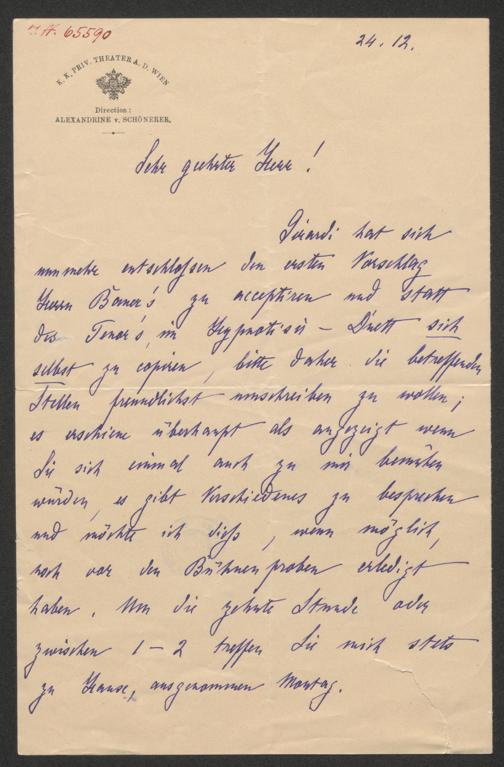 I.N. 65590
24. 12.
K. K. PRIV. THEATER A. D. WIEN
Direction:
ALEXANDRINE v. SCHÖNERER.
Sehr geehrter Herr!
Girardi hat sich
nunmehr entschlossen den ersten Vorschlag
Herrn Bauer's zu acceptiren und statt
des Tenor's, im Hypnotisir-Duett sich
selbst zu copiren, bitte daher die betreffenden
Stellen freundlichst umschreiben zu wollen;
es erschiene überhaupt als angezeigt wenn
Sie sich einmal auch zu mir bemühen
würden, es gibt Verschiedenes zu besprechen
und möchte ich dieß, wenn möglich,
noch vor den Bühnenproben erledigt
haben. Um die zehnte Stunde oder
zwischen 1-2 treffen Sie mich stets
zu Hause, ausgenommen Montag.